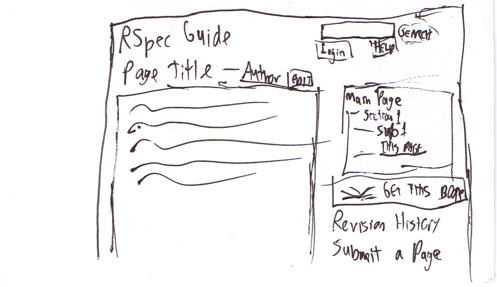 RSpec Guide
SEARCH
Login
HELP
Page Title — Author EDIT
Main Page
— Section 1
— Sub 1
THIS PAGE
GET THIS BOOK
Revision History
Submit a Page